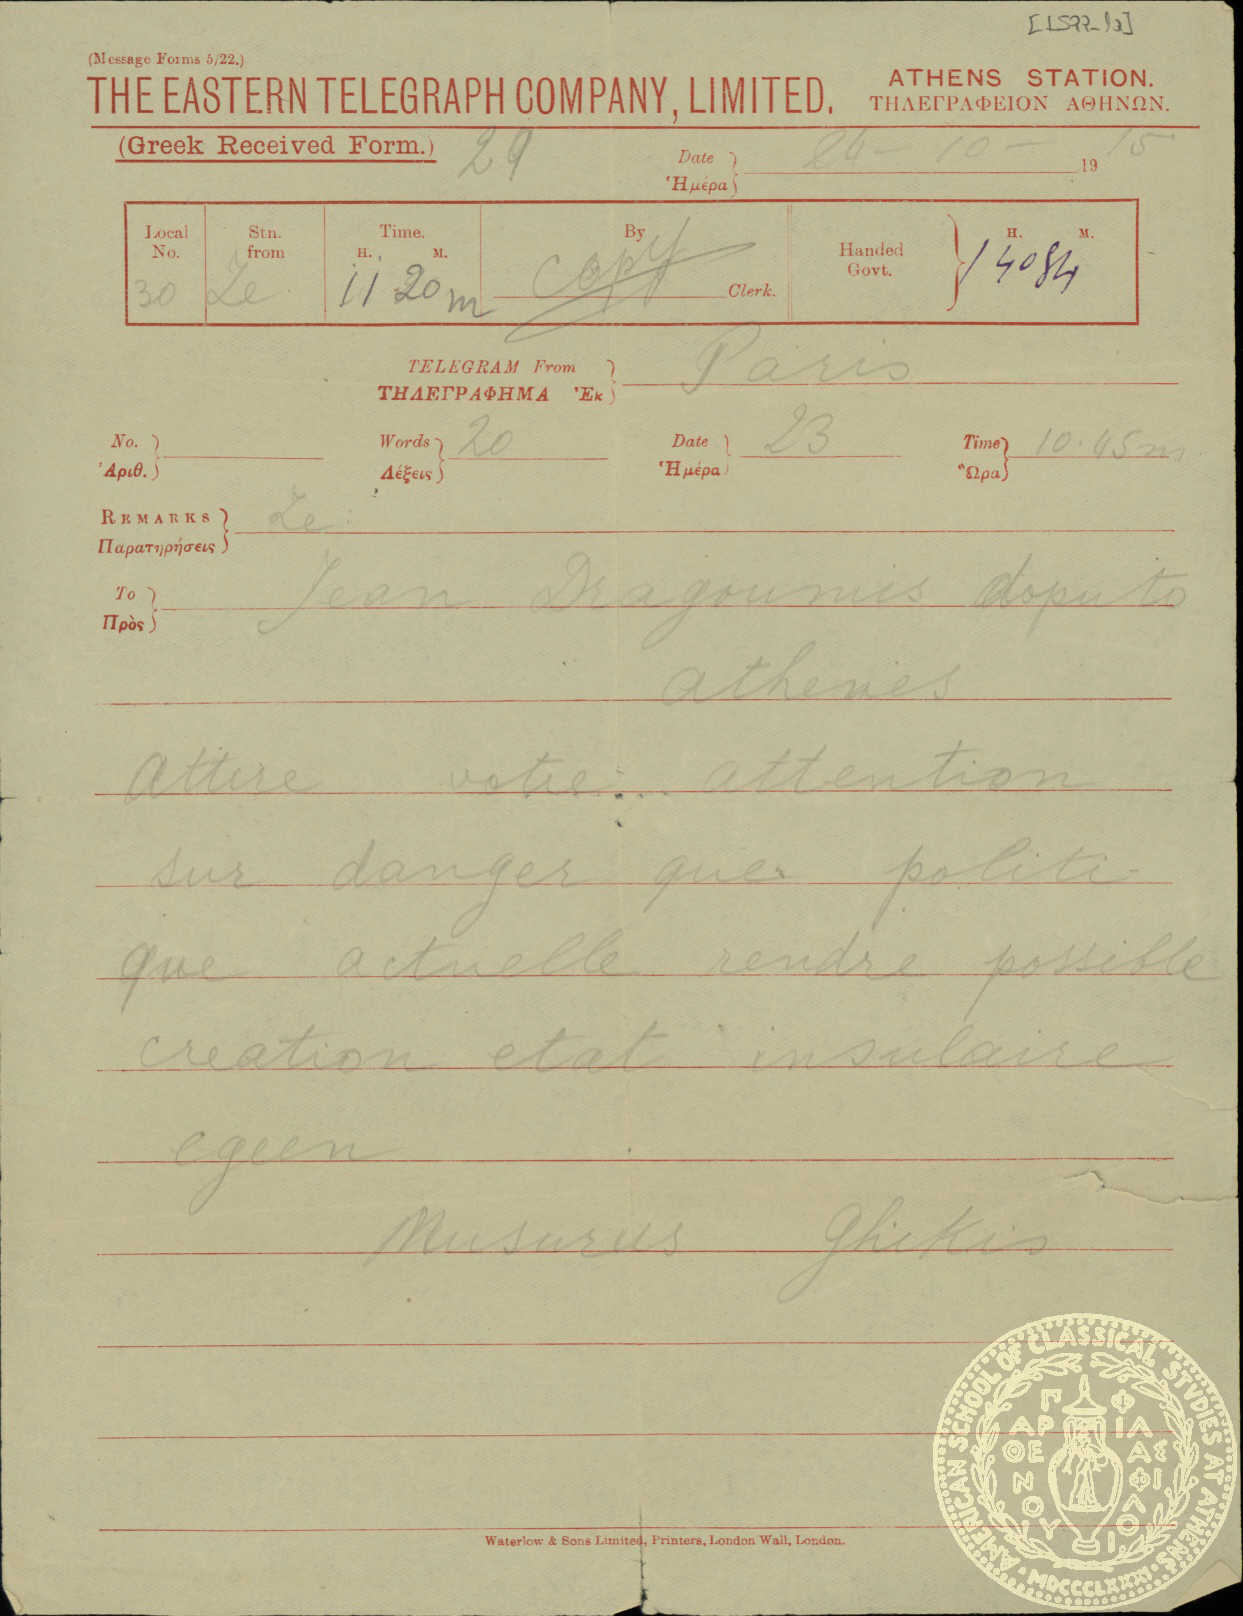 (Message Forms 5/22.)
THE EASTERN TELEGRAPH COMPANY, LIMITED.
ATHENS STATION.
ΤΗΛΕΓΡΑΦΕΙΟΝ ΑΘΗΝΩΝ.
(Greek Received Form.)
29
Date
Ἡμέρα
26 - 10 - 1915
Local No.
Stn. from
Time.
H. M.
By
Clerk.
Handed Govt.
H. M.
30 Ze 11 20 m copy 14084
TELEGRAM From
ΤΗΛΕΓΡΑΦΗΜΑ Ἐκ
Paris
No.
Ἀριθ.
Words
Λέξεις
20
Date
Ἡμέρα
23
Time
Ὥρα
10.45 m
REMARKS
Παρατηρήσεις
Ze
To
Πρὸς
Jean Dragoumis doputo
athenes
Attire votre attention
sur danger que politi
que actuelle rendre possible
creation etat insulaire
egeen
Musurus Ghikis
Waterlow & Sons Limited, Printers, London Wall, London.
AMERICAN SCHOOL OF CLASSICAL STVDIES AT ATHENS
MDCCCLXXXI